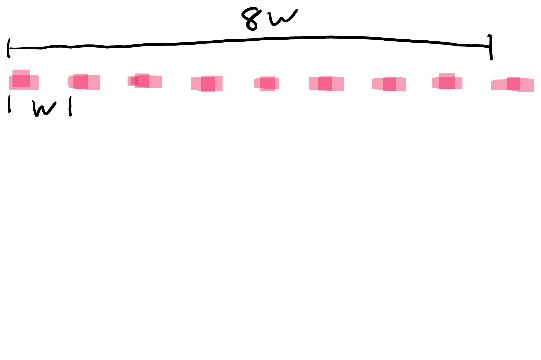 8w
w